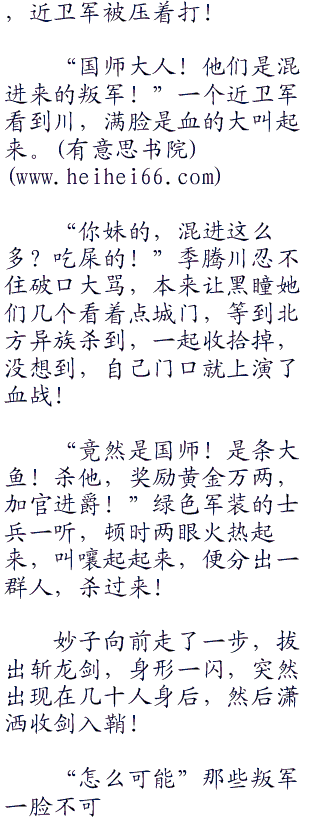 ，近卫军被压着打！
“国师大人！他们是混
进来的叛军！”一个近卫军
看到川，满脸是血的大叫起
来。(有意思书院)
(www.heihei66.com)
“你妹的，混进这么
多？吃屎的！”季腾川忍不
住破口大骂，本来让黑瞳她
们几个看着点城门，等到北
方异族杀到，一起收拾掉，
没想到，自己门口就上演了
血战！
“竟然是国师！是条大
鱼！杀他，奖励黄金万两，
加官进爵！”绿色军装的士
兵一听，顿时两眼火热起
来，叫嚷起起来，便分出一
群人，杀过来！
妙子向前走了一步，拔
出斩龙剑，身形一闪，突然
出现在几十人身后，然后潇
洒收剑入鞘！
“怎么可能”那些叛军
一脸不可